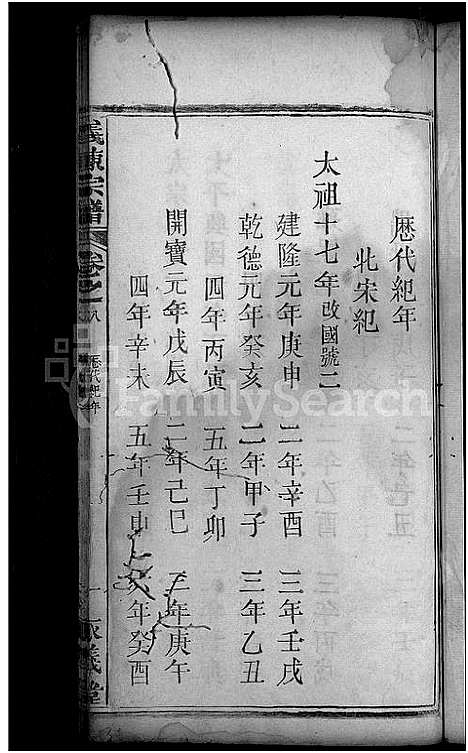 歷代紀年
北宋紀
太祖十七年改國號二
建隆元年庚申 二年辛酉 三年壬戌
乾德元年癸亥 二年甲子 三年乙丑
四年丙寅 五年丁卯
開寶元年戊辰 二年己巳 三年庚午
四年辛未 五年壬申 六年癸酉
義陳宗譜 卷之八 歷代紀年 義堂
FamilySearch